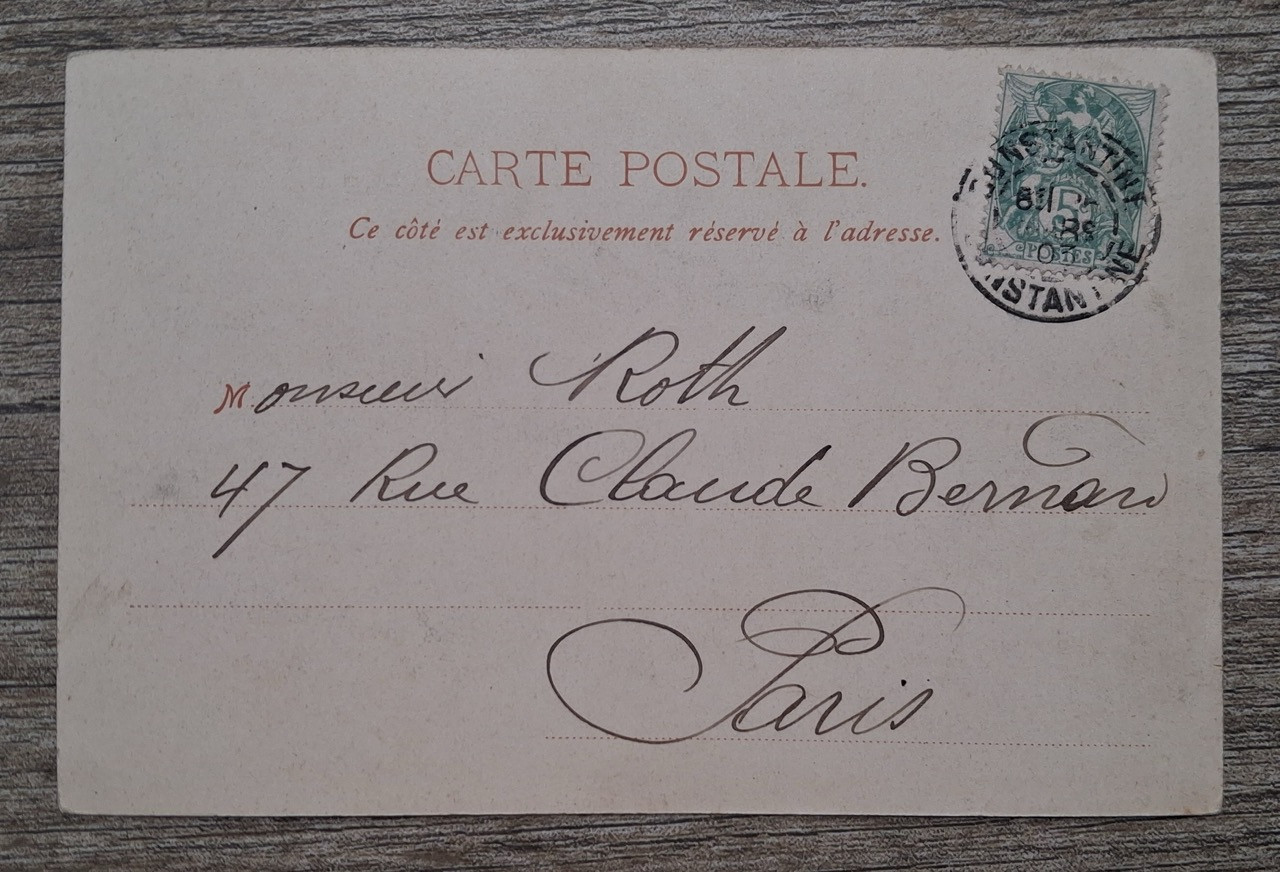 CARTE POSTALE.
Ce côté est exclusivement réservé à l'adresse.
CONSTANTINE
5
03
POSTES
CONSTANTINE
Monsieur Roth
47 Rue Claude Bernard
Paris